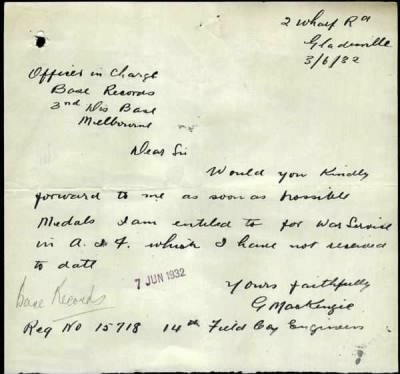 2 Wharf Rd
Gladesville
3/6/32
Officer in Charge
Base Records
3rd Dis Base
Melbourne
Dear Sir
Would you Kindly
forward to me as soon as possible
Medals I am entitled to for War Service
in A.I.F. which I have not received
to date
7 JUN 1932
Yours faithfully
G MacKenzie
Base Records
Reg No 15718 14th Field Coy Engineers